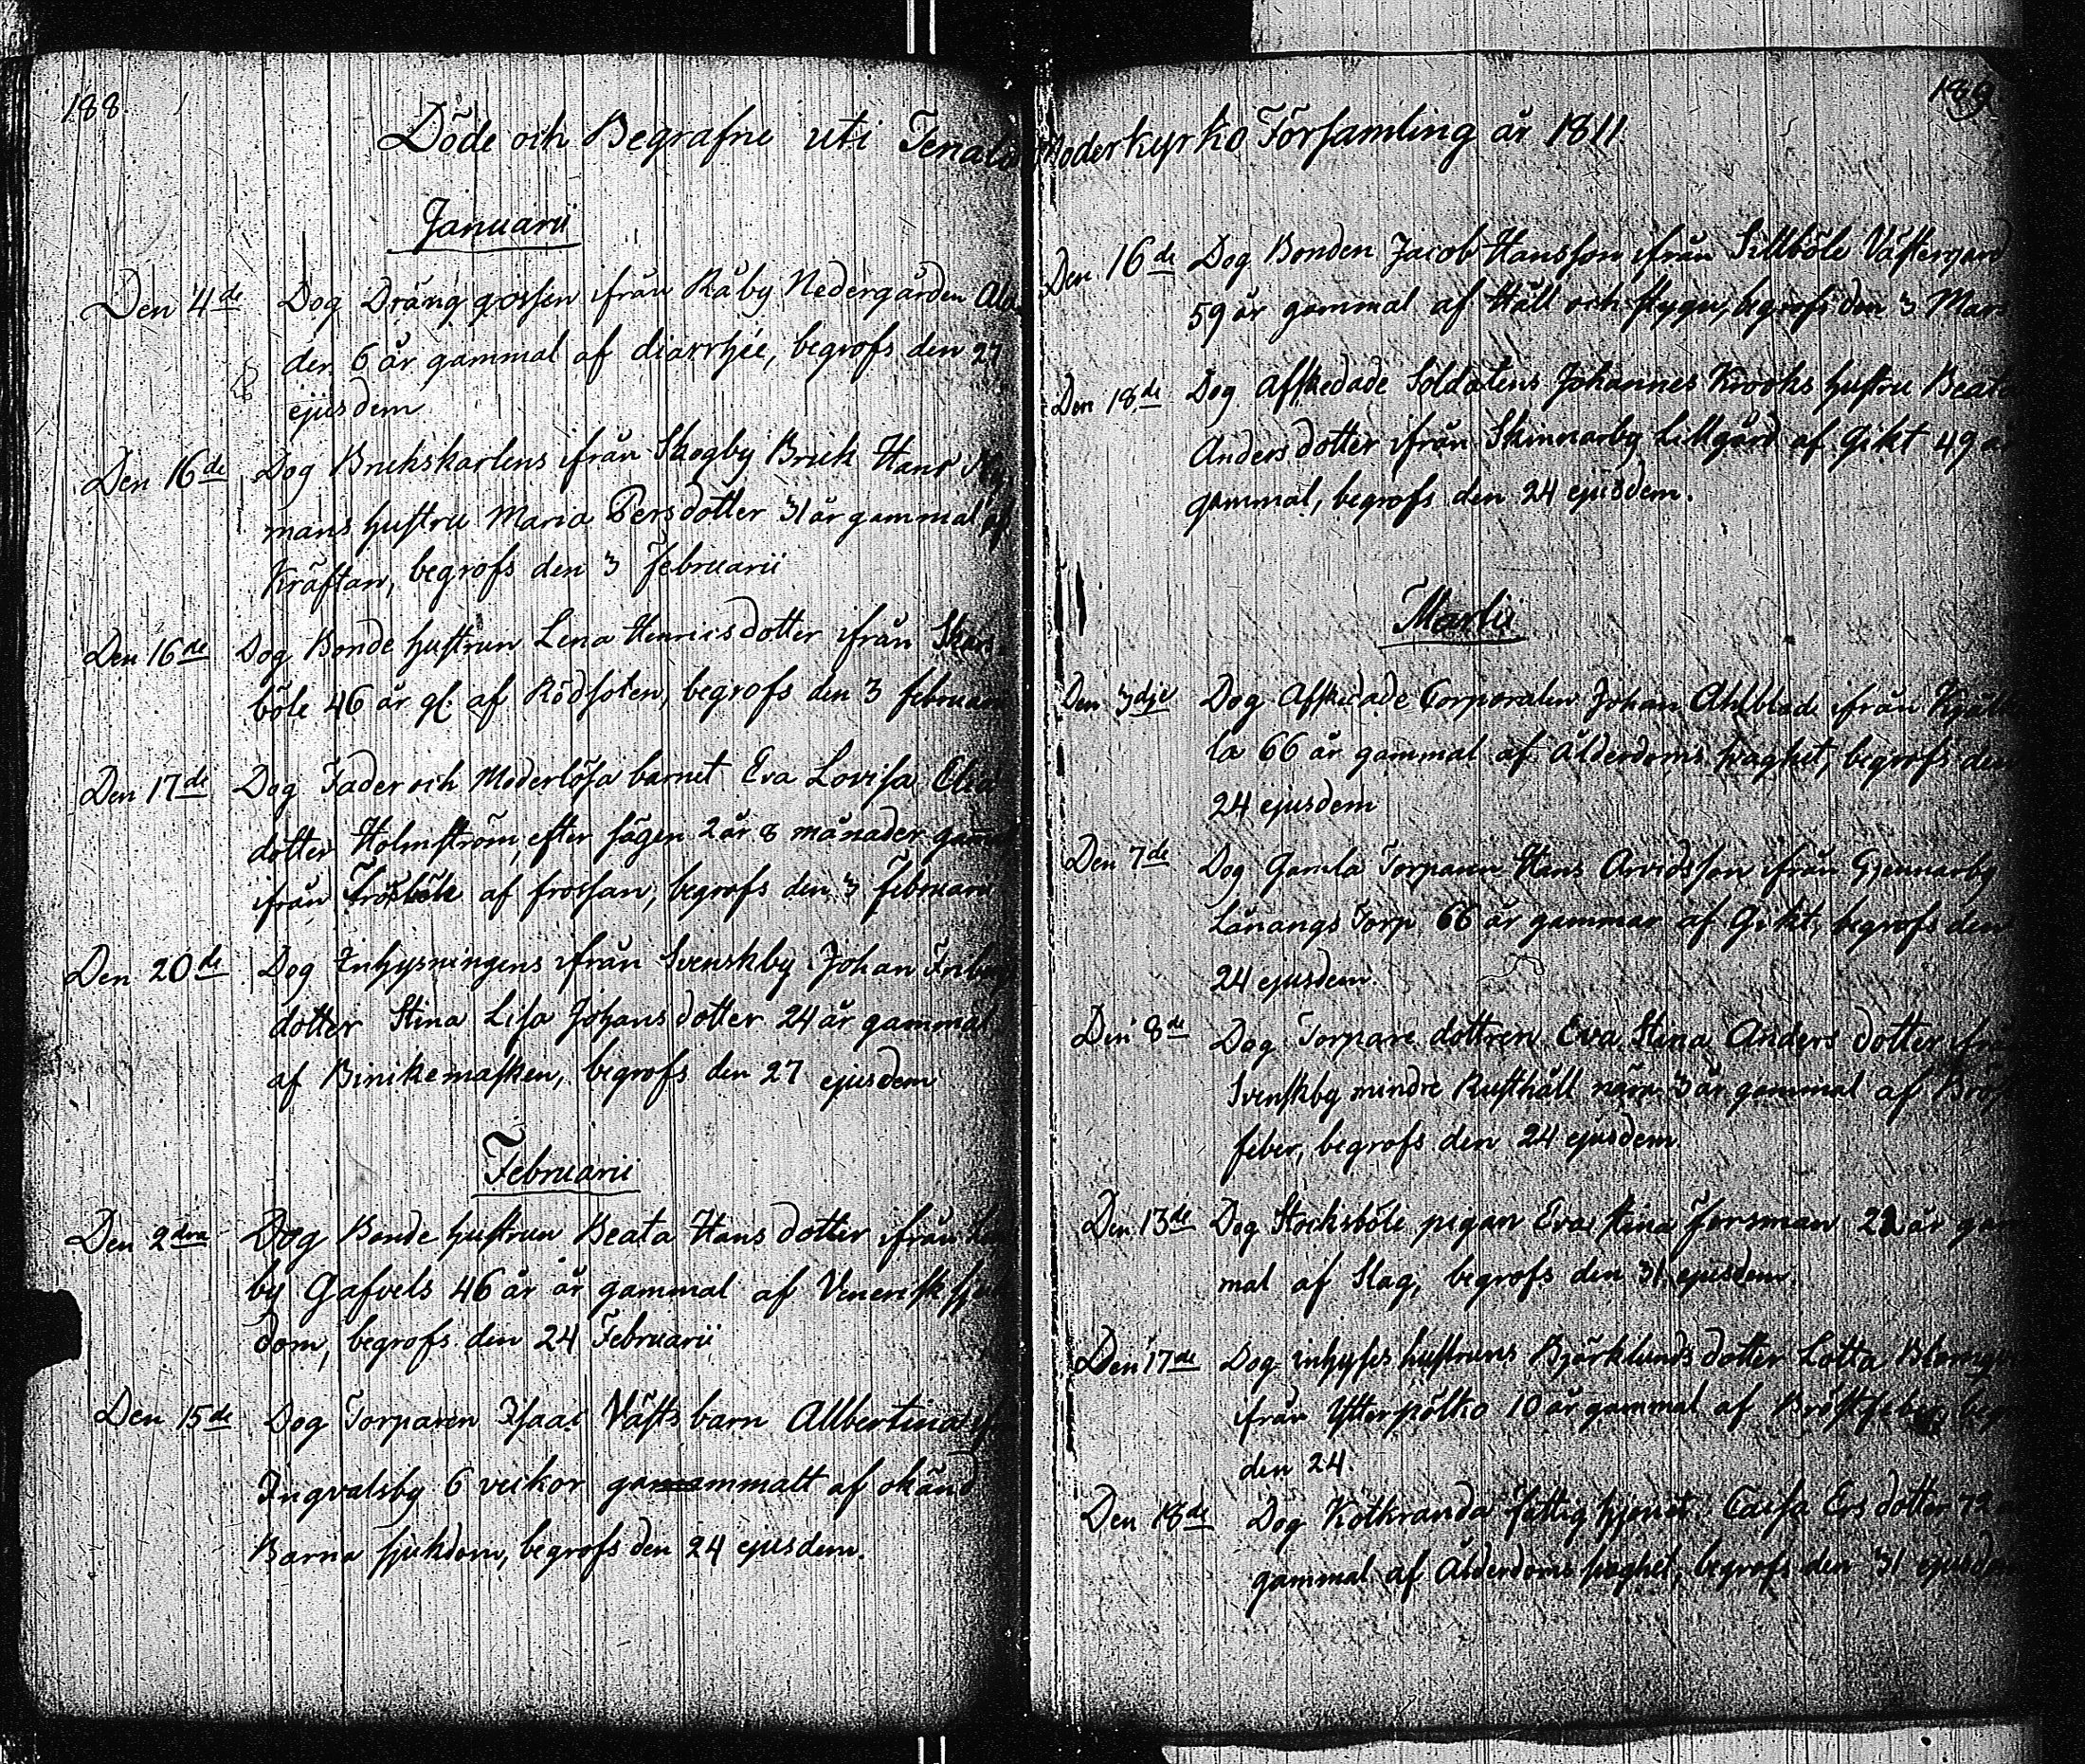 188
Döde och Begrafne uti Tenala
Januarii
Den 4de Dog Dränggossen ifrån Råby Nedergården
der 6 år gammal af diarrhie, begrofs den 27
ejusdem
Den 16de Dog Brukskarlens ifrån Skogby Bruk Hans
mans hustru Maria Persdotter 31 år gammal af
Kräftan, begrofs den 3 Februarii
Den 16de Dog Bonde hustrun Lena Henricsdotter ifrån
böle 46 år gl: af Rödsoten, begrofs den 3 februari
Den 17de Dog Fader och Moderlösa barnet Eva Lovisa
dotter Holmström, efter sägen 2 år 8 månader
ifrån af frossan, begrofs den 3 Februarii
Den 20de Dog Inhysningens ifrån Svenskby Johan
dotter Stina Lisa Johansdotter 24 år gammal
af Binikemasken, begrofs den 27 ejusdem
Februarii
Den 2dra Dog Bonde hustrun Beata Hansdotter ifrån
by Gafvels 46 år år gammal af Venerisk
dom, begrofs den 24 Februarii
Den 15de Dog Torparen Isaac Västs barn Allbertina
Ingvalsby 6 veckor gammalt af okänd
Barna sjukdom, begrofs den 24 ejusdem.
189
Moderkyrko Församling år 1811
Den 16de Dog Bonden Jacob Hansson ifrån Sillböle Västergård
59 år gammal af Håll och stygn, begrofs den 3 Mars
Den 18de Dog Afskedade Soldatens Johannes Krooks hustru Beata
Andersdotter ifrån Skinnarby Lillgård af Gikt 49
gammal, begrofs den 24 ejusdem.
Martii
Den 3dje Dog Afskedade Corporalen Johan Ahlblad ifrån
la 66 år gammal af Ålderdoms begrofs den
24 ejusdem
Den 7de Dog Gamla Torparen Hans Arvidsson ifrån Gjennarby
Lånangs Torp 66 år gammal af Gikt, begrofs den
24 ejusdem.
Den 8de Dog Torpare dottren Eva Stina Andersdotter ifrån
Svenskby mindre Rusthåll 3 år gammal af
feber, begrofs den 24 ejusdem.
Den 13de Dog Stocksböle pigan Eva Stina Forsman år
mal af Slag, begrofs den 31 ejusdem.
Den 17de Dog inhyses hustruns Björklunds dotter Lotta
ifrån Ytterpölko 10 år gammal af Bröstfeber,
den 24.
Den 18de Dog Kotkranda fattig hjonet Caisa Ersdotter 72
gammal af Ålderdoms begrofs den 31 ejusdem